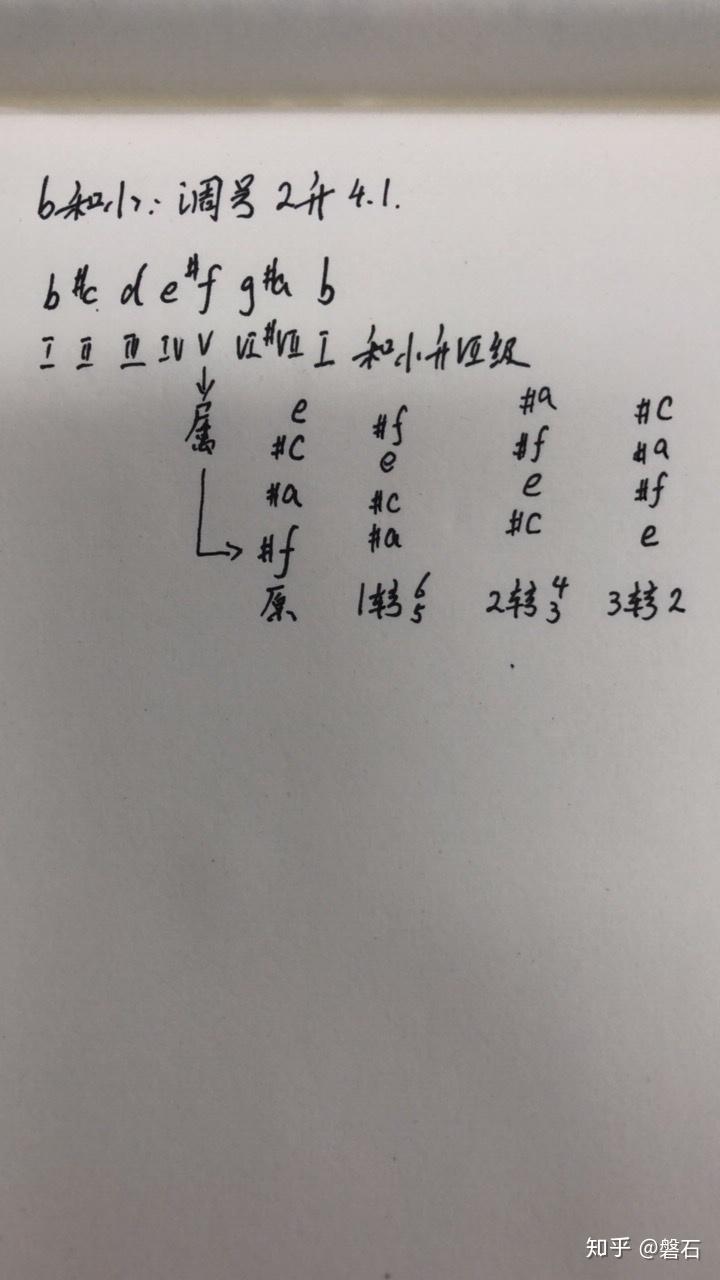 b和小: 调号2升4.1.
b #c d e #f g #a b
I II III IV V VI #VII I 和小升VII级
属
e #f #a #c
#c e #f #a
#a #c e #f
#f #a #c e
原 1转6 5 2转4 3 3转2
知乎 @磐石